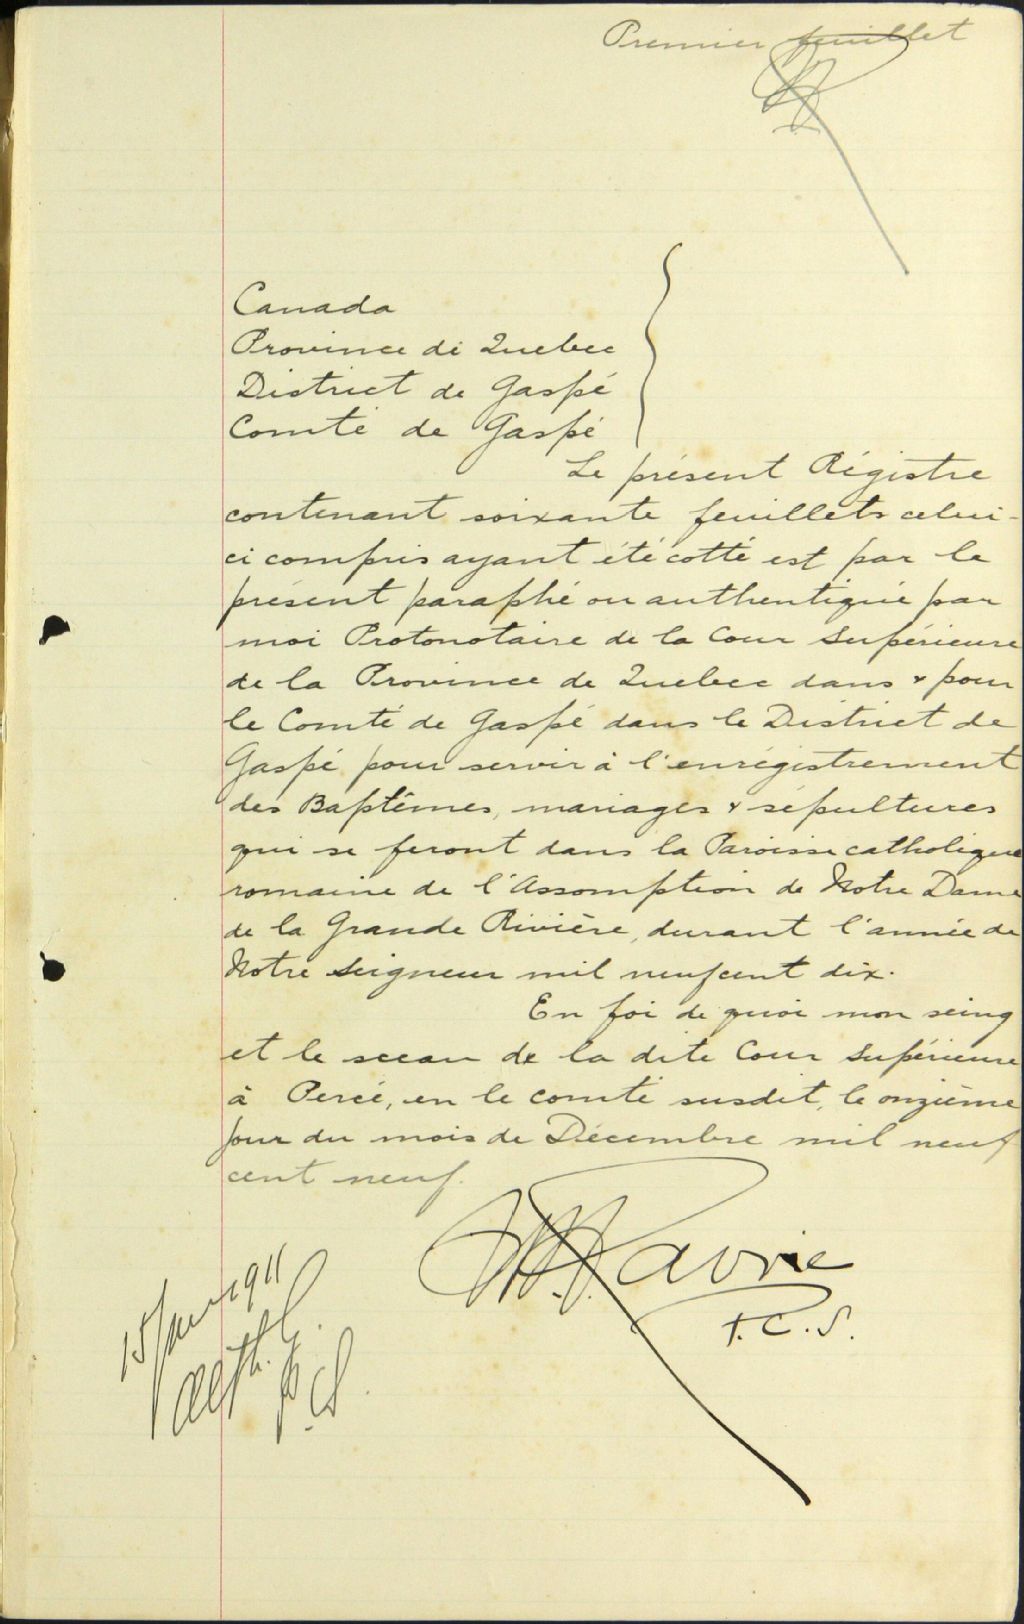 Premier feuillet
Canada
Province de Quebec
District de Gaspé
Comté de Gaspé
Le présent Régistre
contenant soixante feuillets celui-
ci compris ayant été cotté est par le
présent paraphé ou authentiqué par
moi Protonotaire de la Cour Supérieure
de la Province de Quebec dans & pour
le Comté de Gaspé dans le District de
Gaspé pour servir à l'enrégistrement
des Baptêmes, mariages & sépultures
qui se feront dans la Paroisse catholique
romaine de l'Assomption de Notre Dame
de la Grande Rivière, durant l'année de
Notre Seigneur mil neufcent dix.
En foi de quoi mon seing
et le sceau de la dite Cour Supérieure
à Percé, en le comté susdit, le onzième
jour du mois de Décembre mil neuf
cent neuf.
Lavoie
P.C.S.
15 1911
P.C.S.